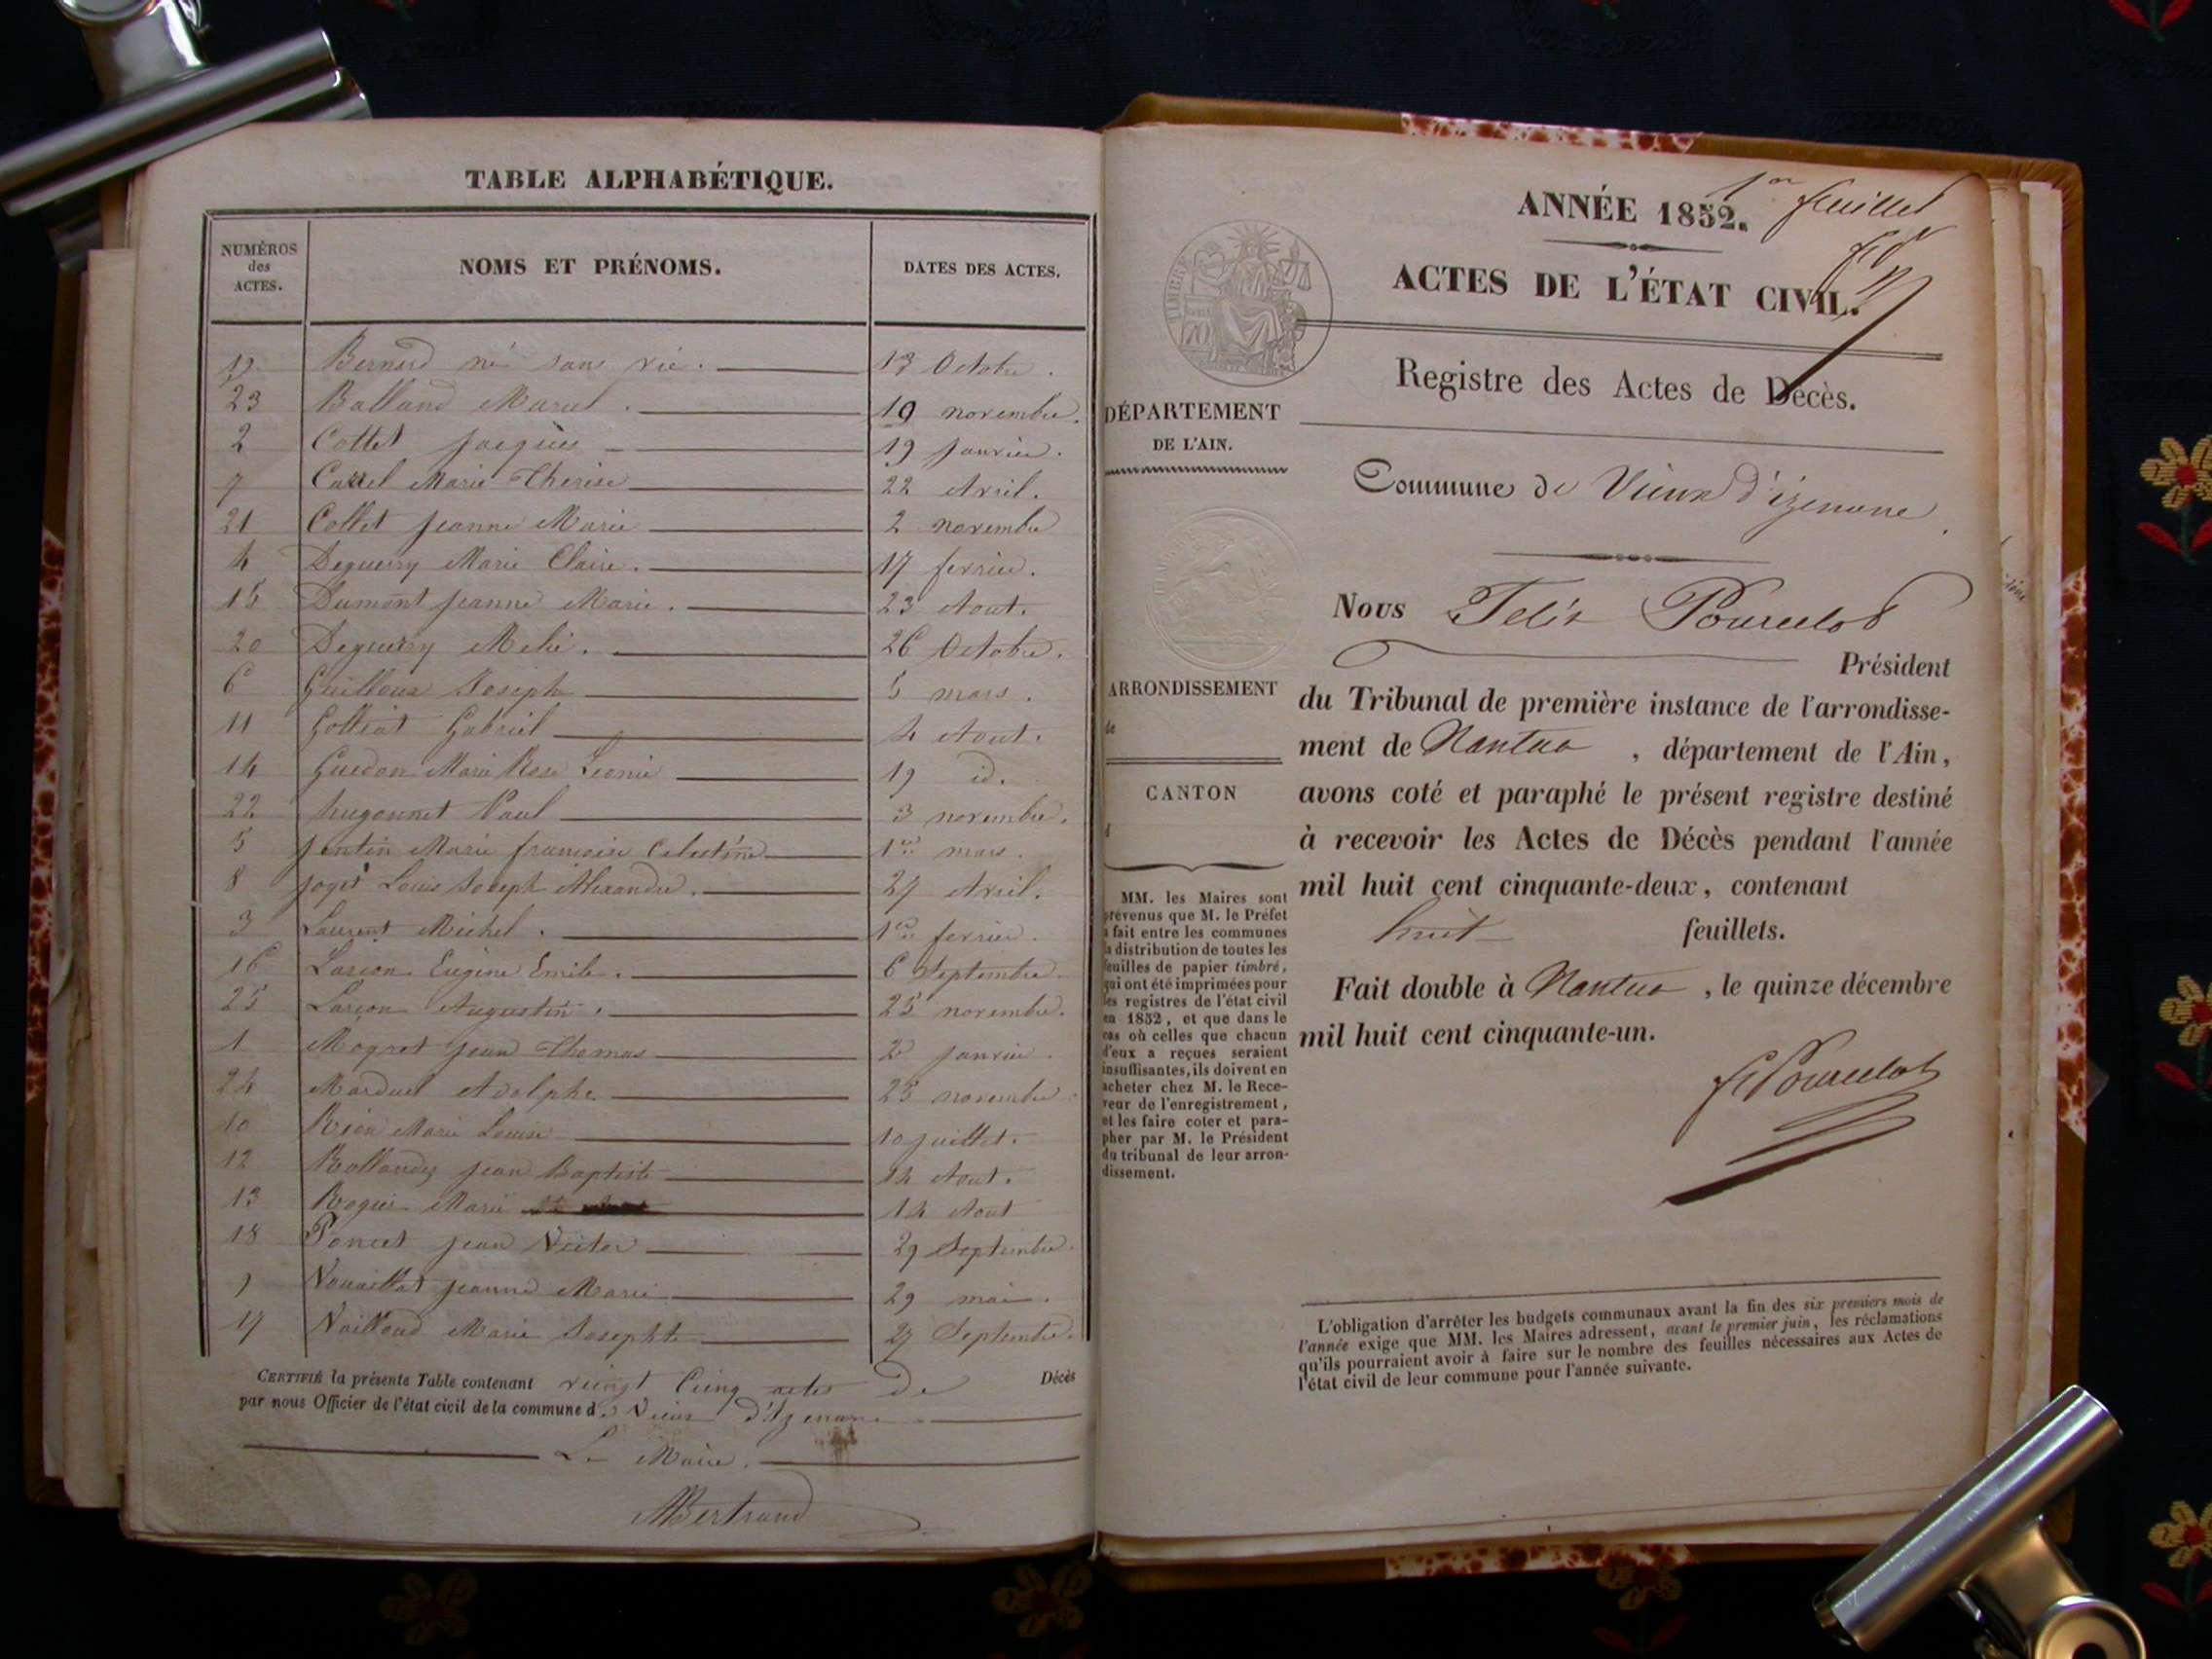 TABLE ALPHABÉTIQUE.
NUMÉROS des ACTES.
NOMS ET PRÉNOMS.
DATES DES ACTES.
19 Bernard né sans vie. 13 Octobre.
23 Balland Marcel. 19 novembre.
2 Collet Jacques 19 janvier.
7 Marie Thérèse 22 Avril.
21 Collet jeanne Marie 2 novembre
4 Deguerry Marie Claire. 17 fevrier.
15 Dumont jeanne Marie. 23 Aout.
20 Deguerry 26 Octobre.
6 Guilloux Joseph 5 mars.
11 Golliat Gabriel 4 Aout.
14 Guedon Marie Rose Leonie 19 id.
22 hugonnet Paul 3 novembre.
5 jantin Marie francoise Celestine 1er mars.
8 Louis Joseph Alexandre. 27 Avril.
3 Laurent Michel. 1er fevrier.
16 Larçon Eugène Emile. 6 Septembre.
25 Larçon Augustin. 25 novembre.
1 Mogret jean Thomas 2 janvier.
24 Marduel Adolphe 25 novembre.
10 Marie Louise 10 juillet.
12 Rollandez jean Baptiste 14 Aout.
13 Rogier Marie 14 Aout
18 Poncet jean Victor 29 Septembre.
9 Vouaillat jeanne Marie 29 mai.
17 Vailloud Marie Josephte 27 Septembre.
CERTIFIÉ la présente Table contenant vingt Cinq actes de Décès
par nous Officier de l'état civil de la commune de Vieux d'Izenave
Le Maire.
Bertrand
1er feuillet
ANNÉE 1852.
ACTES DE L'ÉTAT CIVIL.
Registre des Actes de Décès.
TIMBRE
DÉPARTEMENT
DE L'AIN.
Commune de Vieux d'izenave
Nous Félix Pourcelot
Président
du Tribunal de première instance de l'arrondisse-
ment de Nantua, département de l'Ain,
avons coté et paraphé le présent registre destiné
à recevoir les Actes de Décès pendant l'année
mil huit cent cinquante-deux, contenant
huit feuillets.
Fait double à Nantua, le quinze décembre
mil huit cent cinquante-un.
f Pourcelot
ARRONDISSEMENT
de
CANTON
d
MM. les Maires sont
prévenus que M. le Préfet
a fait entre les communes
la distribution de toutes les
feuilles de papier timbré,
qui ont été imprimées pour
les registres de l'état civil
en 1852, et que dans le
cas où celles que chacun
d'eux a reçues seraient
insuffisantes, ils doivent en
acheter chez M. le Rece-
veur de l'enregistrement,
et les faire coter et para-
pher par M. le Président
du tribunal de leur arron-
dissement.
L'obligation d'arrêter les budgets communaux avant la fin des six premiers mois de
l'année exige que MM. les Maires adressent, avant le premier juin, les réclamations
qu'ils pourraient avoir à faire sur le nombre des feuilles nécessaires aux Actes de
l'état civil de leur commune pour l'année suivante.